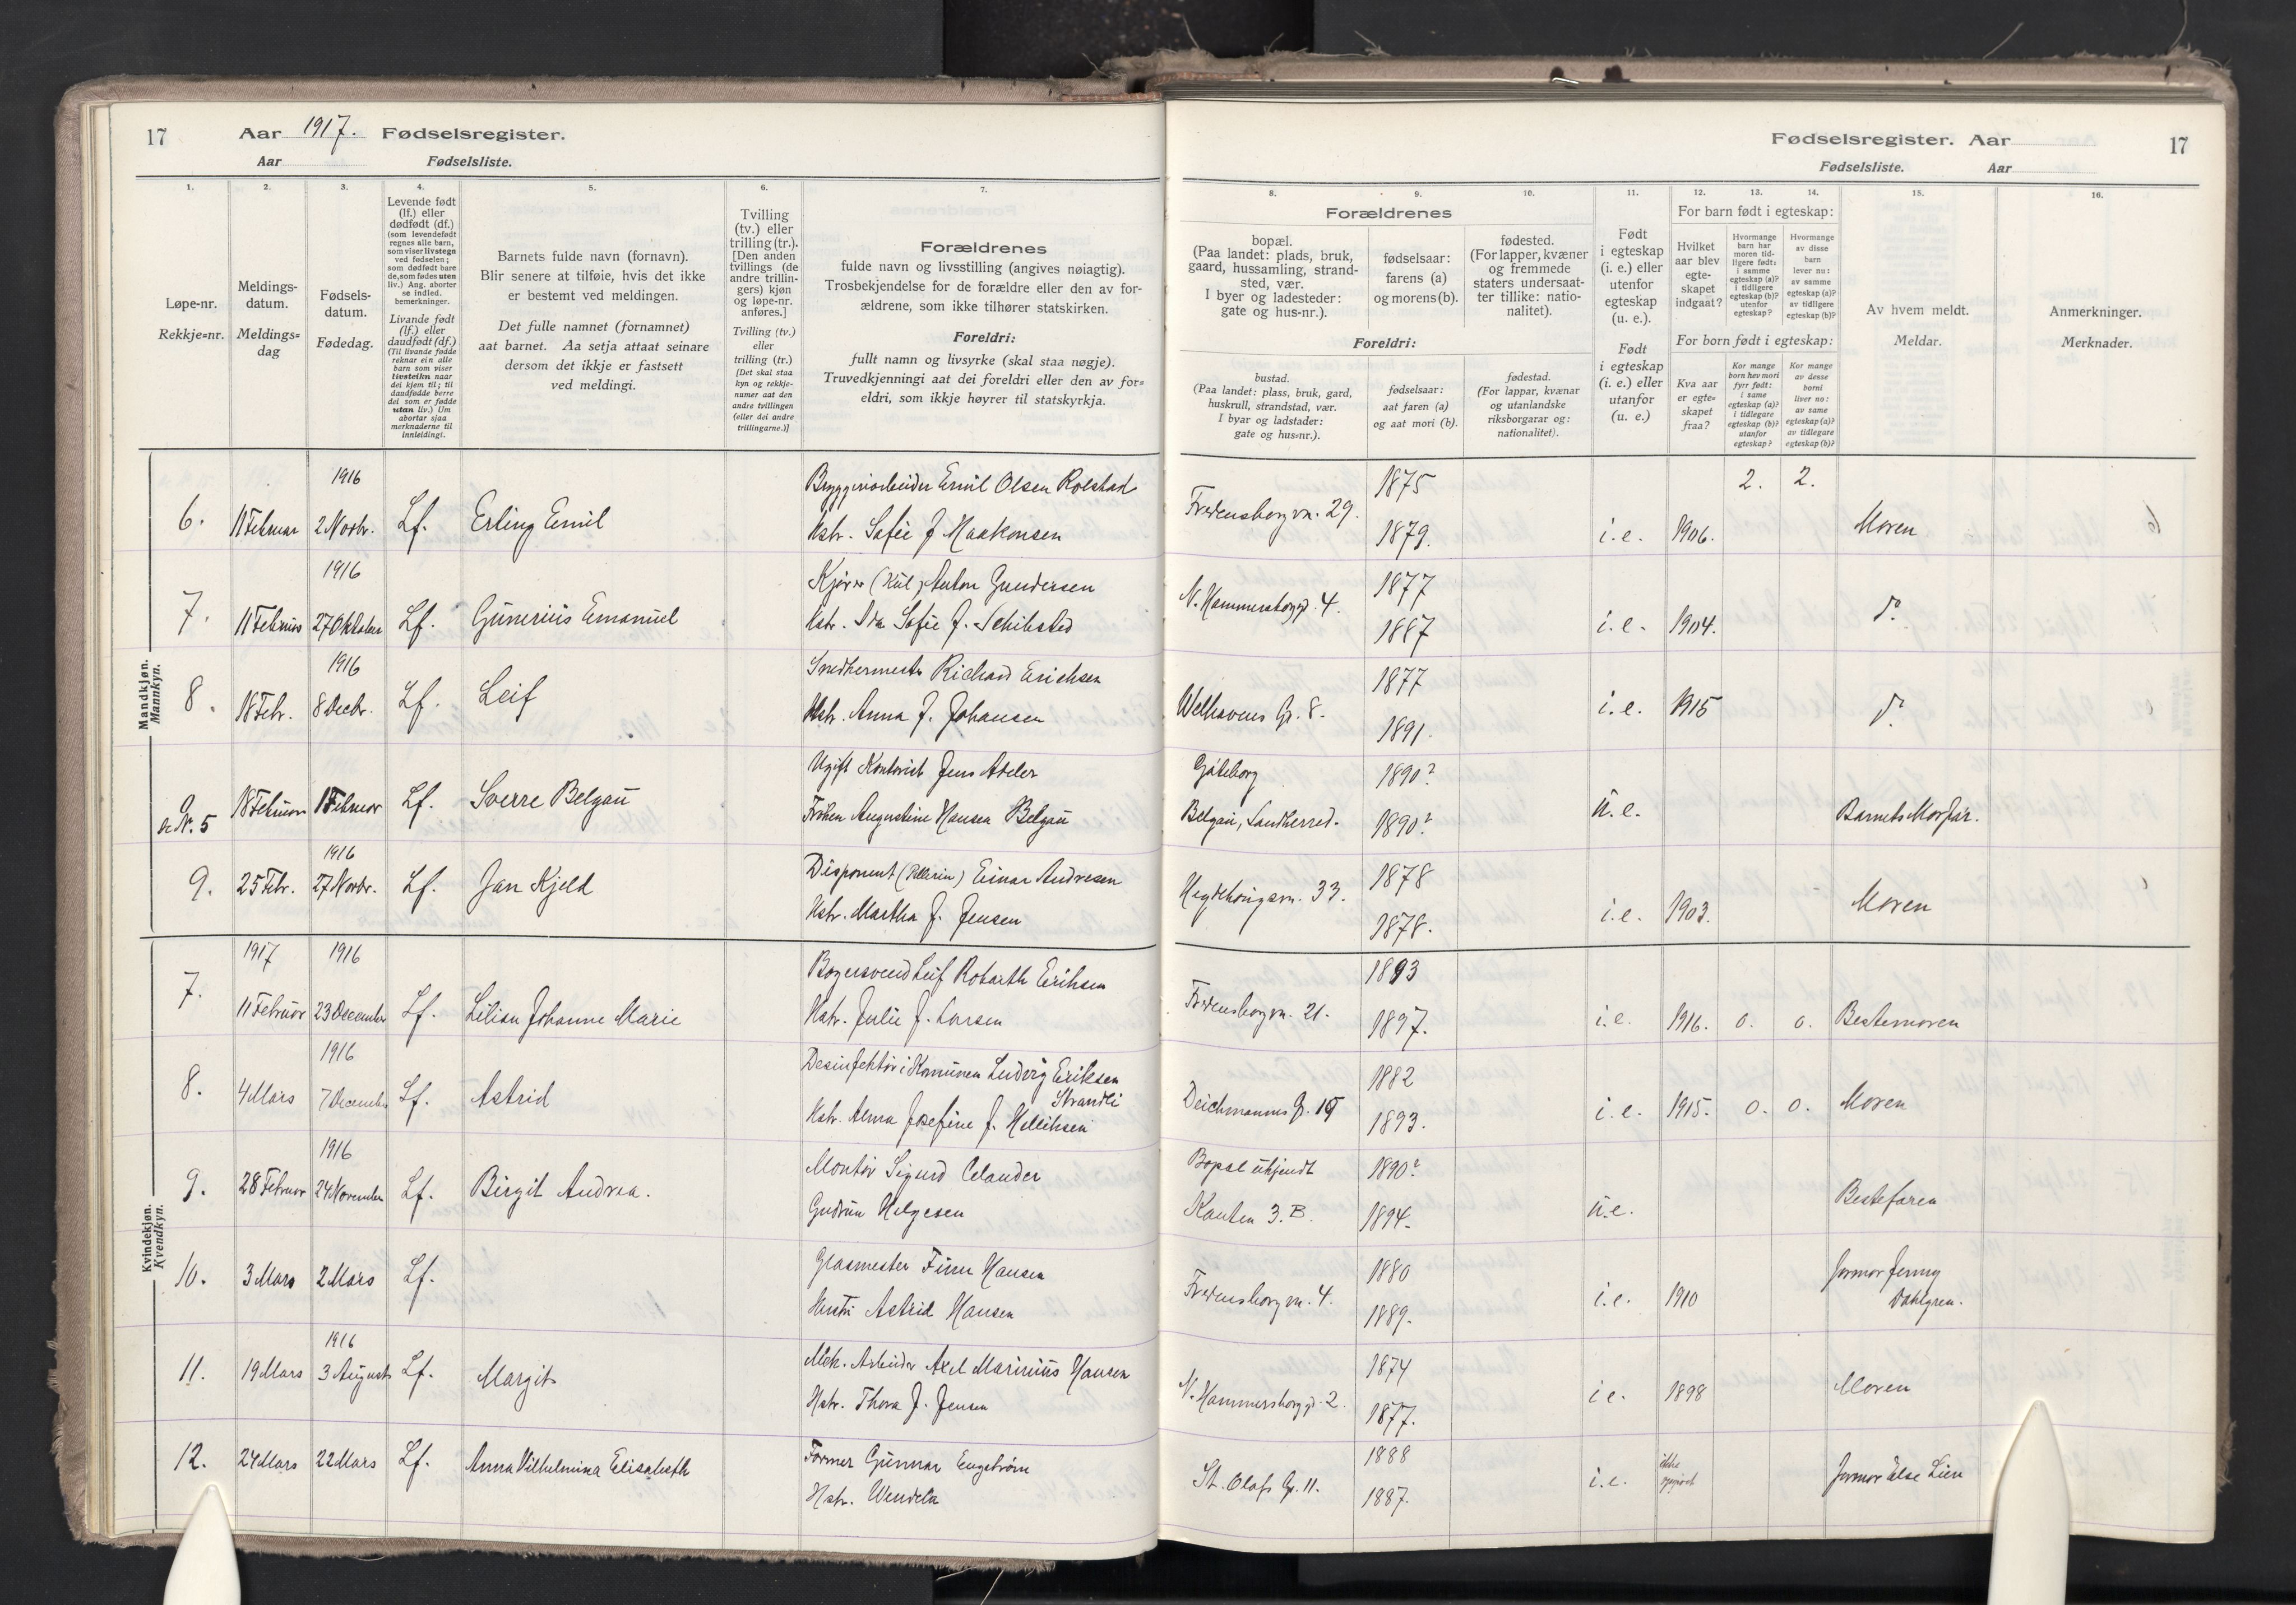 17 Aar 1917. Fødselsregister.
Aar Fødselsliste.
1. 2. 3. 4. 5. 6. 7.
Løpe-nr.
Rekkje=nr.
Meldings-
datum.
Meldings=
dag
Fødsels-
datum.
Fødedag.
Levende født
(lf.) eller
dødfødt (df.)
(som levendefødt
regnes alle barn,
som viser livstegn
ved fødselen;
som dødfødt bare
de, som fødes uten
liv.) Ang. aborter
se indled.
bemerkninger.
Livande født
(lf.) eller
daudfødt (df.)
(Til livande fødde
reknar ein alle
barn som viser
livsteikn naar
dei kjem til; til
daudfødde berre
dei som er fødde
utan liv.) Um
abortar sjaa
merknaderne til
innleidingi.
Barnets fulde navn (fornavn).
Blir senere at tilføie, hvis det ikke
er bestemt ved meldingen.
Det fulle namnet (fornamnet)
aat barnet. Aa setja attaat seinare
dersom det ikkje er fastsett
ved meldingi.
Tvilling
(tv.) eller
trilling (tr.).
[Den anden
tvillings (de
andre trillin-
gers) kjøn
og løpe-nr.
anføres.]
Tvilling (tv.)
eller
trilling (tr.)
[Det skal staa
kyn og rekkje-
numer aat den
andre tvillingen
(eller dei andre
trillingarne.)]
Forældrenes
fulde navn og livsstilling (angives nøiagtig).
Trosbekjendelse for de forældre eller den av for-
ældrene, som ikke tilhører statskirken.
Foreldri:
fullt namn og livsyrke (skal staa nøgje).
Truvedkjenningi aat dei foreldri eller den av for=
eldri, som ikkje høyrer til statskyrkja.
Mandkjøn.
Mannkyn.
1916
6. 11 Februar 2 Novbr. Lf. Erling Emil
Bryggeriarbeider Emil Olsen Rolstad
Hstr. Sofie f Haakonsen
1916
7. 11 Februar 27 Oktober Lf. Gunerius Emanuel
Kjører (Kul) Anton Gundersen
Hstr. Ida Sofie f. Schibsted
1916
8. 18 Febr. 8 Decbr. Lf. Leif
Snedkermester Richard Erichsen
Hstr. Anna f. Johansen
9
se Nr. 5 18 Februar 1 Februar Lf. Sverre Belgau
Ugift Kontorist Jens Adeler
Frøken Augustine Hansen Belgau
1916
9. 25 Febr. 27 Novbr. Lf. Jan Kjeld
Disponent Einar Andresen
Hstr. Martha f. Jensen
Kvindekjøn.
Kvendkyn.
1917 1916
7. 11 Februar 23 December Lf. Lilian Johanne Marie
Bagersvend Leif Robarth Eriksen
Hstr. Julie f. Larsen
1916
8. 4 Mars 7 December Lf. Astrid
Desinfektør i Komunen Ludvig Eriksen
Strandli
Hstr. Alma Josefine f.
1916
9. 28 Februar 24 November Lf. Birgit Andrea.
Montør Sigurd Celander
Gudrun Helgesen
10. 3 Mars 2 Mars Lf.
Glasmester Finn Hansen
Hustru Astrid Hansen
1916
11. 19 Mars 3 August Lf. Margit
Mek. Arbeider Axel Marinius Hansen
Hstr. Thora f. Jensen
12. 24 Mars 22 Mars Lf. Anna Vilhelmina Elisabeth
Former Gunnar Engstrøm
Hstr. Wendela
Fødselsregister. Aar 17
Fødselsliste. Aar
8. 9. 10. 11. 12. 13. 14. 15. 16.
Forældrenes
bopæl.
(Paa landet: plads, bruk,
gaard, hussamling, strand-
sted, vær.
I byer og ladesteder:
gate og hus-nr.).
fødselsaar:
farens (a)
og morens (b).
fødested.
(For lapper, kvæner
og fremmede
staters undersaat-
ter tillike: natio-
nalitet).
Foreldri:
bustad.
(Paa landet: plass, bruk, gard,
huskrull, strandstad, vær.
I byar og ladstader:
gate og hus=nr.).
fødselsaar:
aat faren (a)
og aat mori (b).
fødestad.
(For lappar, kvænar
og utanlandske
riksborgarar og:
nationalitet).
Født
i egteskap
(i. e.) eller
utenfor
egteskap
(u. e.).
Født
i egteskap
(i. e.) eller
utanfor
(u. e.)
For barn født i egteskap:
Hvilket
aar blev
egte-
skapet
indgaat?
Hvormange
barn har
moren tid-
ligere født:
i samme
egteskap (a)?
i tidligere
egteskap (b)?
utenfor
egteskap?
Hvormange
av disse
barn
lever nu:
av samme
egteskap (a)?
av tidligere
egteskap (b)?
For born født i egteskap:
Kva aar
er egte=
skapet
fraa?
Kor mange
born hev mori
fyrr født:
i same
egteskap (a)?
i tidlegare
egteskap (b)?
utanfor
egteskap?
Kor mange
av desse
borni
liver no:
av same
egteskap (a)?
av tidlegare
egteskap (b)?
Av hvem meldt.
Meldar.
Anmerkninger.
Merknader.
1875 2. 2.
Fredensborgvn. 29.
1879. i.e. 1906. Moren
1877
N. Hammersborggt. 4.
1887 i.e. 1904. do
1877
Welhavens Gt. 8.
1891. i.e. 1915 do
Göteborg 1890?
Belgau, Sandherred. 1890? u.e. Barnets Morfar.
1878
Hegdehaugsvn. 33.
1878. i.e. 1903. Moren
1893
Fredensborgvn. 21.
1897. i.e. 1916. 0. 0. Bestemoren
1882
Deichmanns G. 19
1893. i.e. 1915. 0. 0. Moren
Bopæl ukjendt 1890?
Kanten 3.B. 1894. u.e. Bestefaren
1880
Fredensborgvn. 4.
1889. i.e. 1910 Jormor Jenny
Dahlgren.
1874
N. Hammersborggt. 2.
1877. i e. 1898 Moren
1888
St. Olafs Gt. 11.
1887. i.e. ikke
opgivet Jormor Else Lien